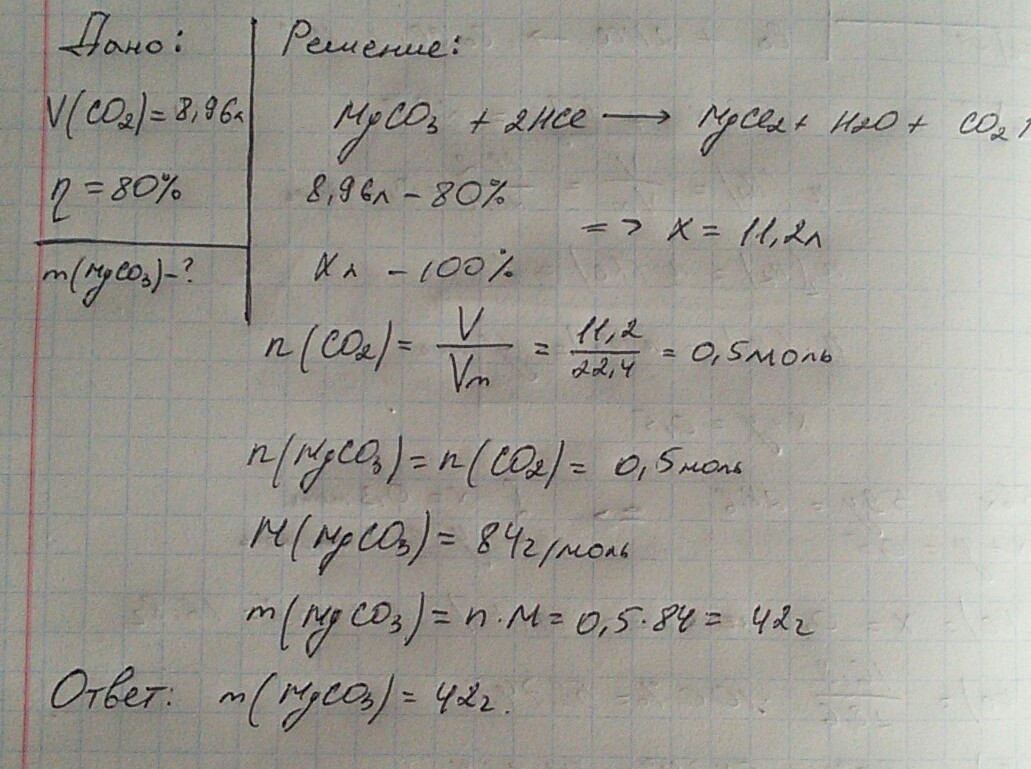 Дано:
V(CO2)=8,96л
η=80%
m(MgCO3)-?
Решение:
MgCO3 + 2HCl → MgCl2 + H2O + CO2↑
8,96л - 80%
=> X = 11,2л
Xл - 100%
n(CO2) = V/Vm = 11,2/22,4 = 0,5моль
n(MgCO3) = n(CO2) = 0,5моль
M(MgCO3) = 84г/моль
m(MgCO3) = n·M = 0,5·84 = 42г
Ответ: m(MgCO3) = 42г.